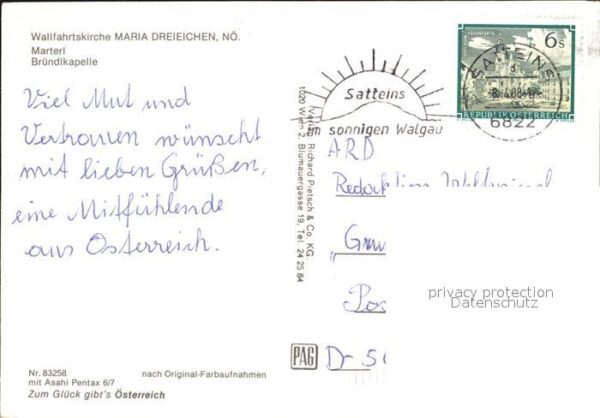 Wallfahrtskirche MARIA DREIEICHEN, NÖ.
Marterl
Bründikapelle
Viel Mut und
Vertrauen wünscht
mit lieben Grüßen,
eine Mitfühlende
aus Österreich.
Nr. 83258 nach Original-Farbaufnahmen
mit Asahi Pentax 6/7
Zum Glück gibt's Österreich
Verlag Richard Pietsch & Co. KG
1020 Wien 2, Blumauergasse 19, Tel. 24 25 84
PAG
Satteins
im sonnigen Walgau
SATTEINS
6822
6 S
REPUBLIK ÖSTERREICH
ARD
Redaktion
"
D-5
privacy protection
Datenschutz